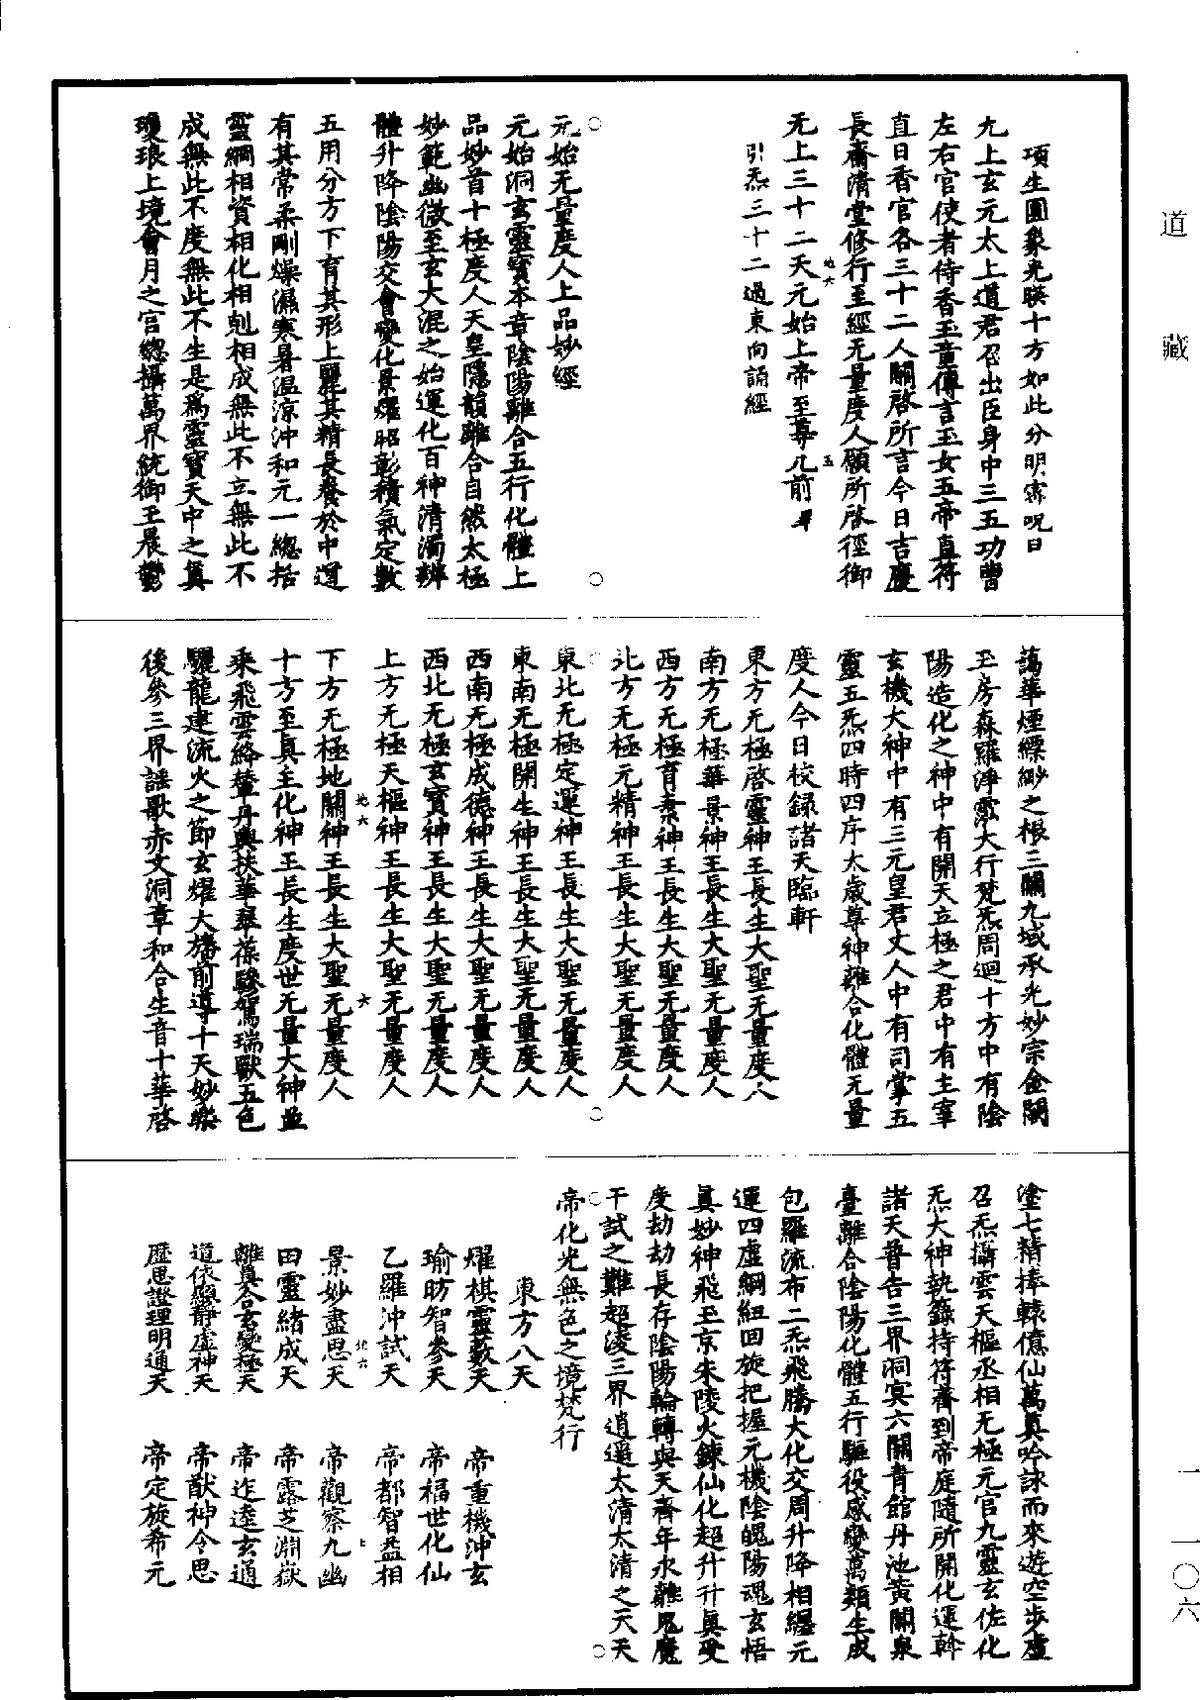 道藏
項生圓象光映十方如此分明密呪曰
九上玄元太上道君召出臣身中三五功曹
左右官使者侍香玉童傳言玉女五帝直符
直日香官各三十二人關啓所言今日吉慶
長齋清堂修行至經无量度人願所啓徑御
地六
无上三十二天元始上帝至尊几前畢
五
引炁三十二過東向誦經
元始无量度人上品妙經
元始洞玄靈寶本章陰陽離合五行化體上
品妙首十極度人天皇隱韻離合自然太極
妙範幽微至玄大混之始運化百神清濁辨
體升降陰陽交會變化景燿昭彰積氣定數
五用分方下育其形上麗其精長養於中道
有其常柔剛燥濕寒暑温涼沖和元一總括
靈綱相資相化相剋相成無此不立無此不
成無此不度無此不生是爲靈寶天中之真
瓊琅上境會月之宫總攝萬界統御玉晨鬱
藹華煙縹緲之根三關九域承光妙宗金闕
玉房森羅淨霐大行梵炁周迴十方中有陰
陽造化之神中有開天立極之君中有主宰
玄機大神中有三元皇君丈人中有司掌五
靈五炁四時四序太歲尊神離合化體无量
度人今日校録諸天臨軒
東方无極啓靈神王長生大聖无量度人
南方无極華景神王長生大聖无量度人
西方无極育素神王長生大聖无量度人
北方无極元精神王長生大聖无量度人
東北无極定運神王長生大聖无量度人
東南无極開生神王長生大聖无量度人
西南无極成德神王長生大聖无量度人
西北无極玄寶神王長生大聖无量度人
上方无極天樞神王長生大聖无量度人
地六
六
下方无極地關神王長生大聖无量度人
十方至真主化神王長生度世无量大神並
乘飛雲絡輦丹輿扶華翠葆驂駕瑞獸五色
驪龍建流火之節玄燿大旛前導十天妙樂
後參三界謡歌赤文洞章和合生音十華啓
塗七精捧轅億仙萬真吟詠而來遊空步虚
召炁攝雲天樞丞相无極元官九靈玄佐化
炁大神執籙持符齎到帝庭隨所開化運幹
諸天普告三界洞冥六關青館丹池黄關泉
臺離合陰陽化體五行驅役感變萬類生成
包羅流布二炁飛騰大化交周升降相纒元
運四虚綱紐回旋把握元機陰魄陽魂玄悟
真妙神飛玉京朱陵火鍊仙化超升升真受
度劫劫長存陰陽輪轉與天齊年永離鬼魔
干試之難超淩三界逍遥太清太清之天天
帝化光無色之境梵行
東方八天
燿棋靈數天 帝重機沖玄
瑜昉智參天 帝福世化仙
乙羅沖試天 帝都智益相
北六
景妙盡思天 帝觀察九幽
七
田靈緒成天 帝露芝淵嶽
離真合玄變極天 帝迮逵玄通
道依顯靜虚神天 帝猷神令思
歷思證理明通天 帝定旋希元
一 一〇六